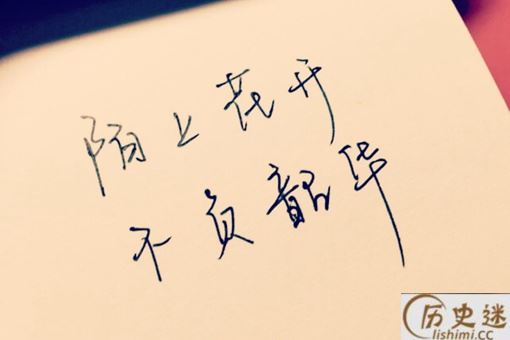 陌上花开
不负韶华
历史迷
lishimi.cc